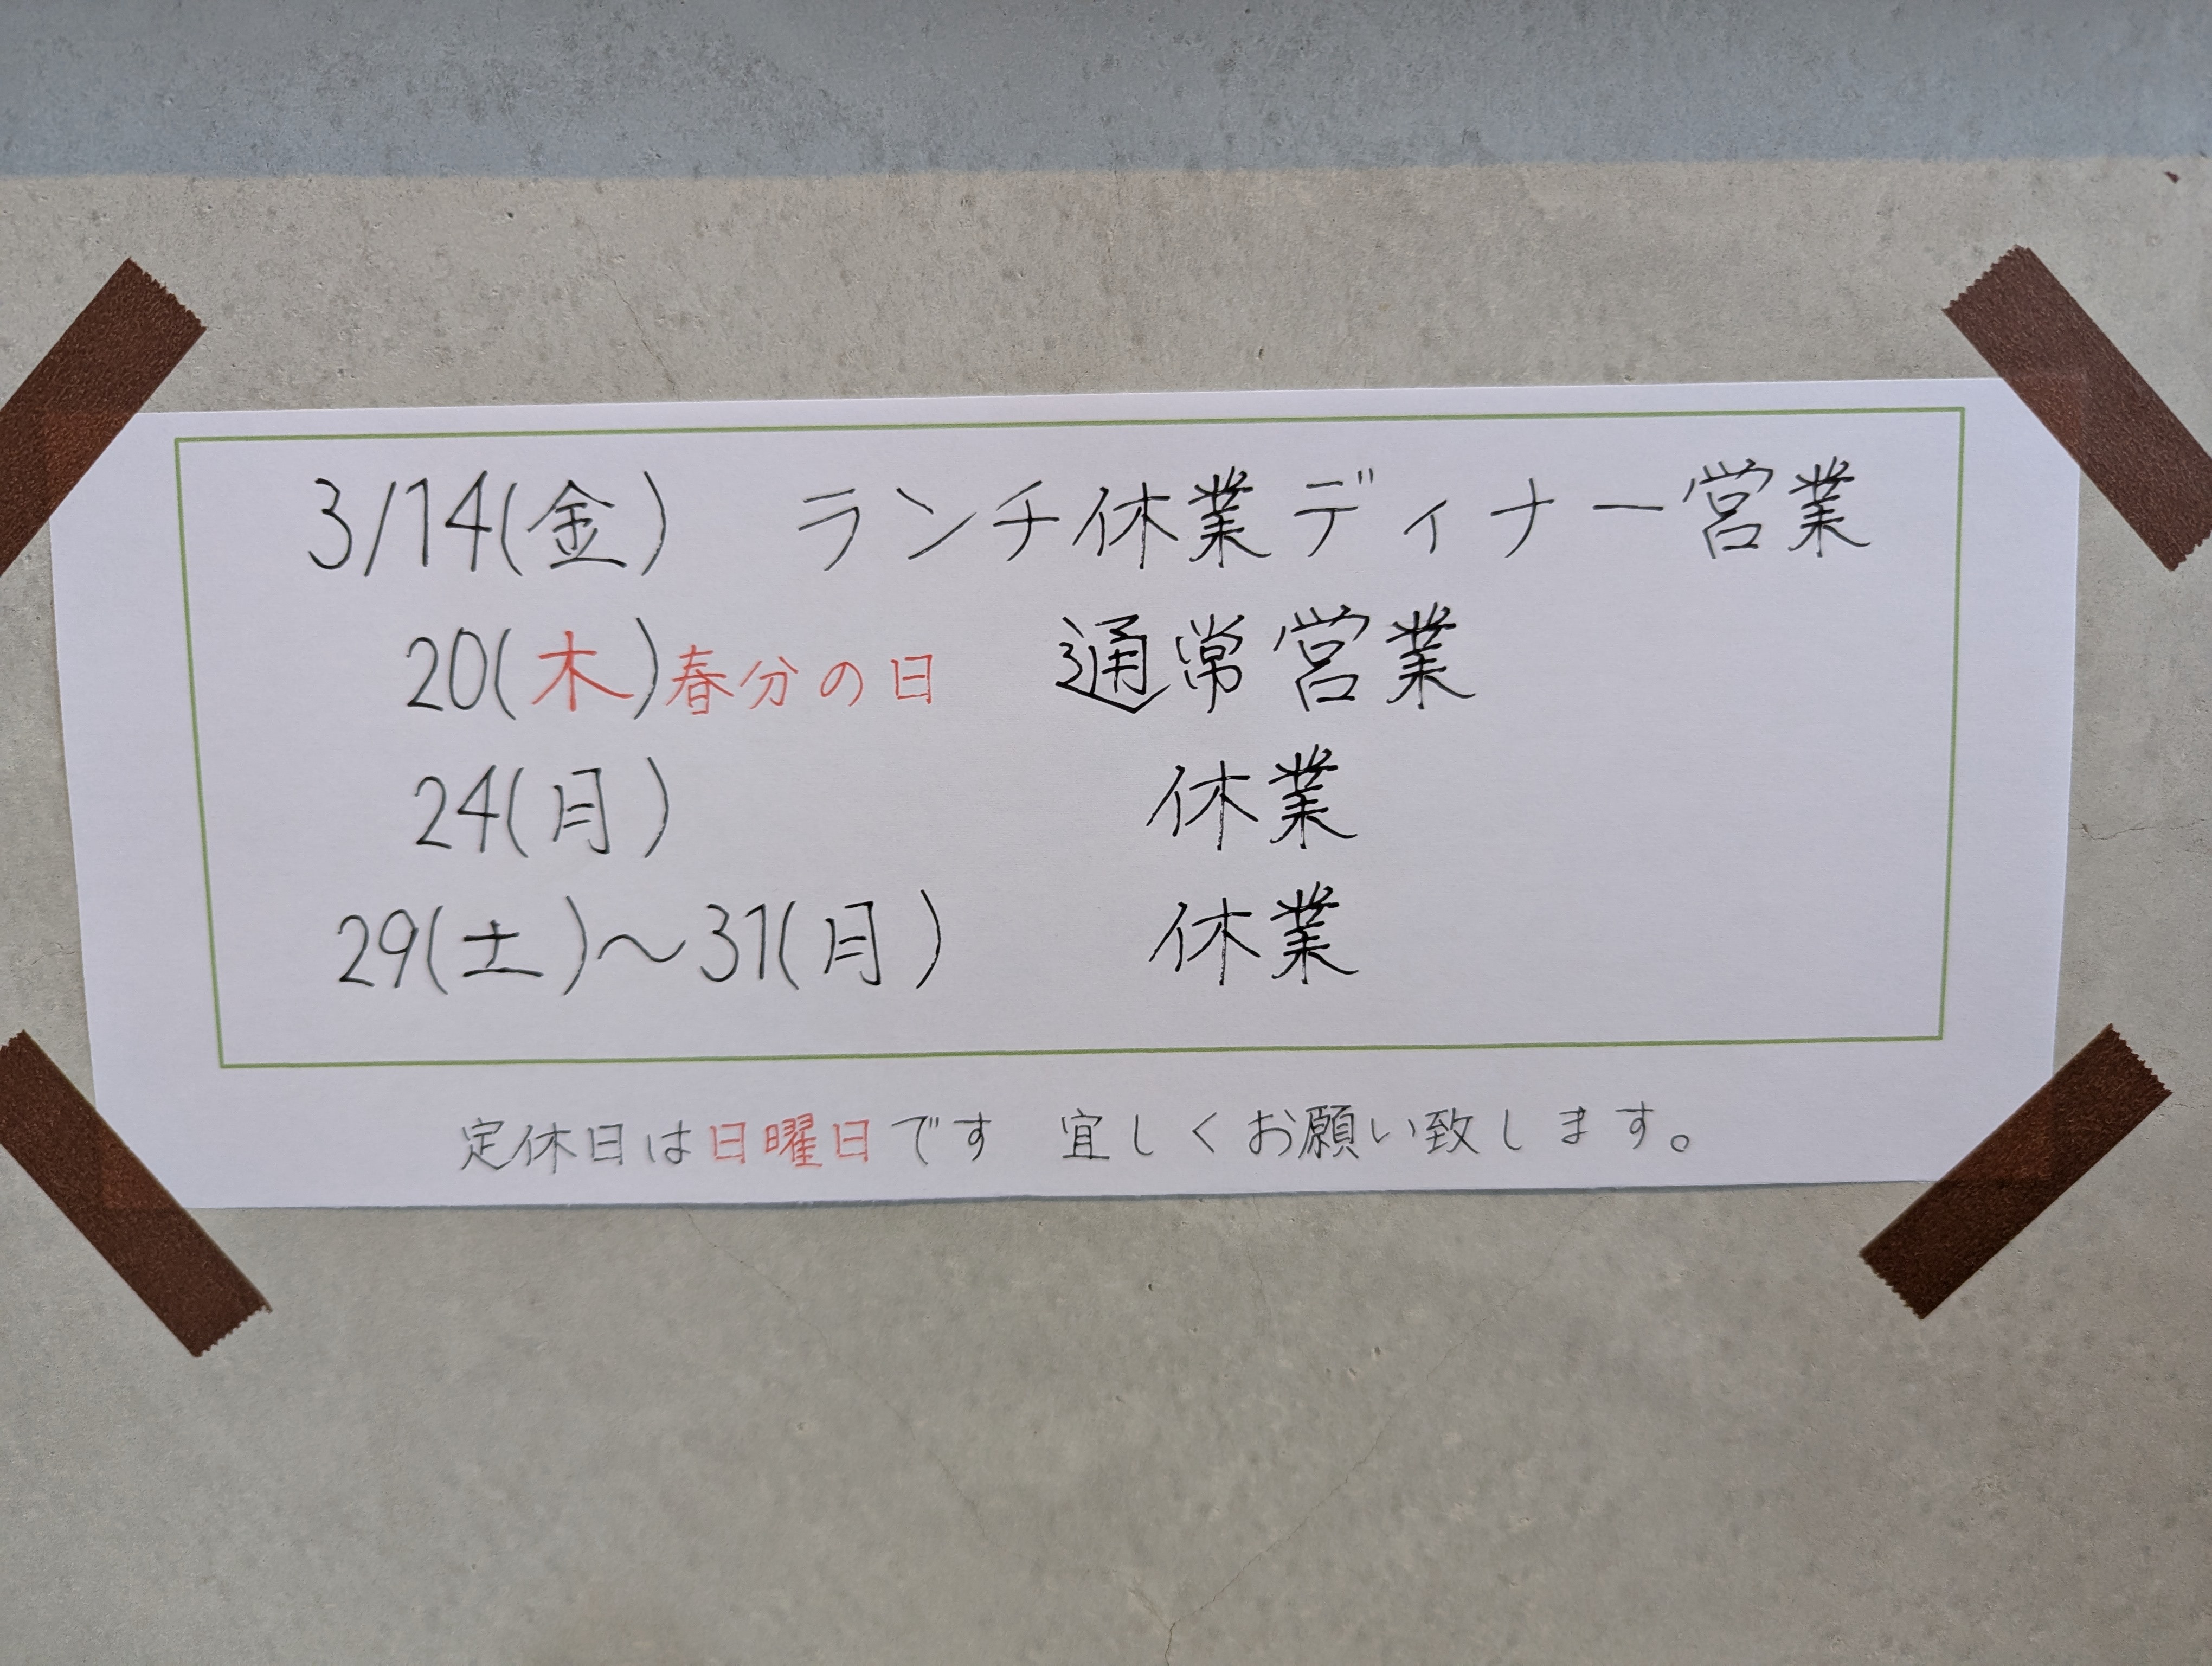 3/14(金) ランチ休業ディナー営業
20(木)春分の日 通常営業
24(月) 休業
29(土)〜31(月) 休業
定休日は日曜日です 宜しくお願い致します。